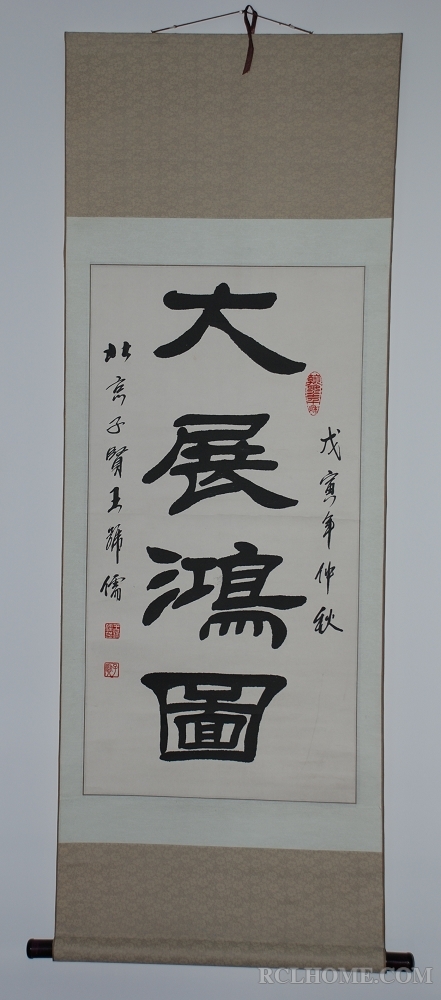 大展鴻圖
戊寅年仲秋
北京子賢王辉儒
RCLHOME.COM